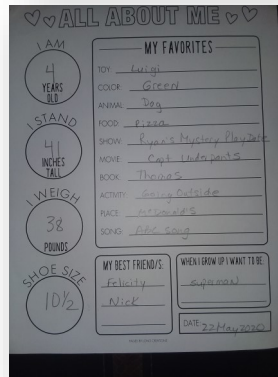 ALL ABOUT ME
I AM
4
YEARS
OLD
I STAND
41
INCHES
TALL
I WEIGH
38
POUNDS
SHOE SIZE
10½
MY FAVORITES
TOY Luigi
COLOR Green
ANIMAL Dog
FOOD Pizza
SHOW Ryan's Mystery PlayDate
MOVIE Capt Underpants
BOOK Thomas
ACTIVITY Going Outside
PLACE McDonald's
SONG ABC Song
MY BEST FRIEND/S:
Felicity
Nick
WHEN I GROW UP I WANT TO BE:
superman
DATE 22 May 2020